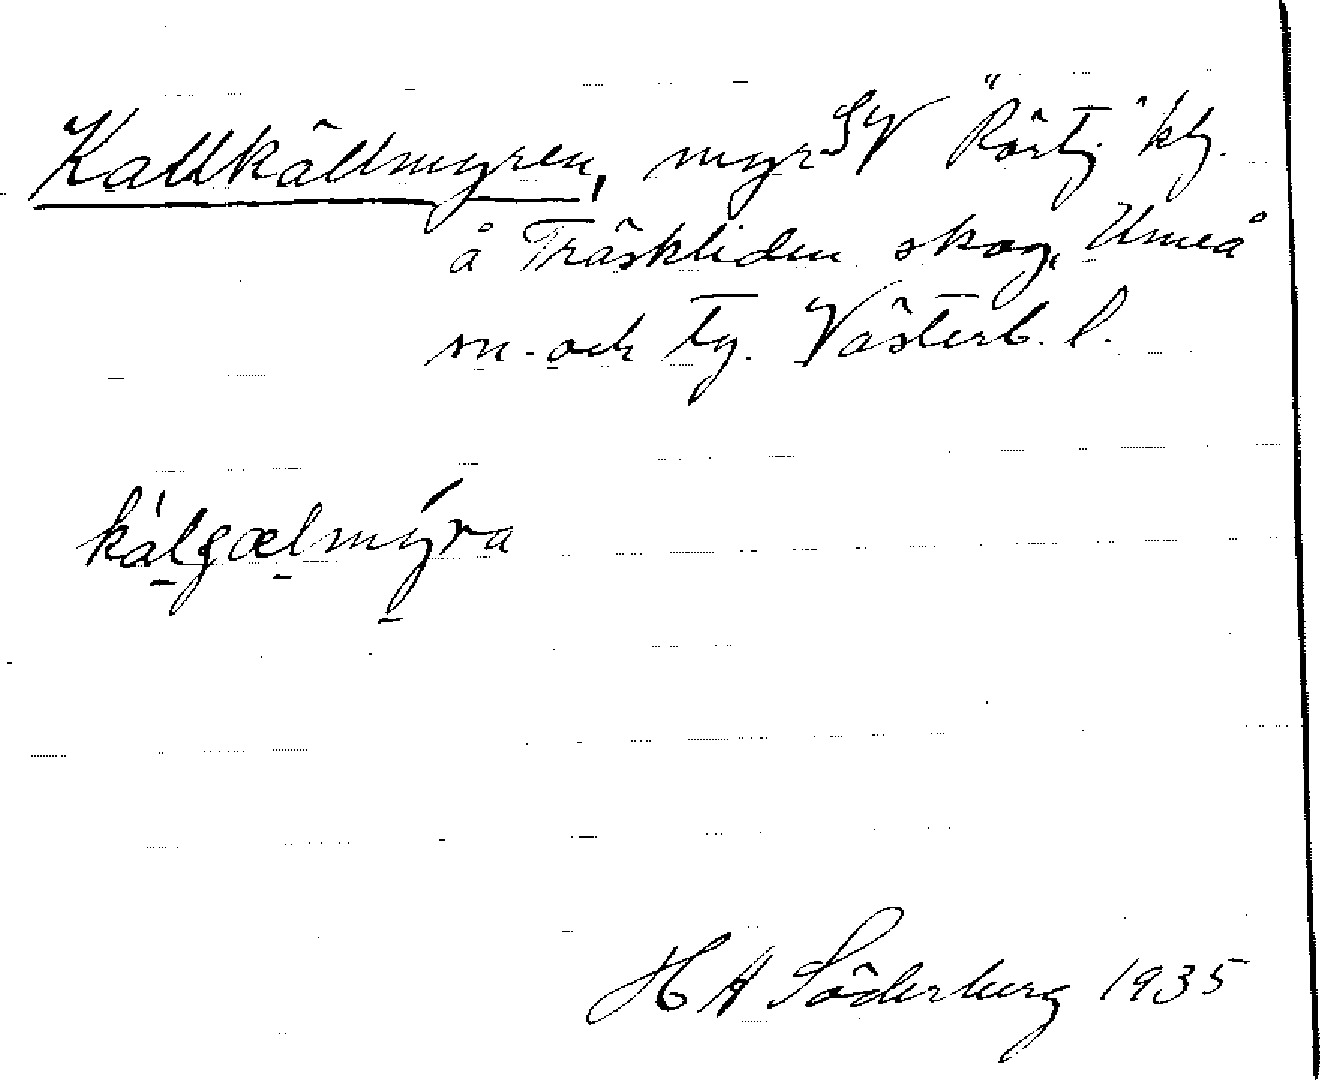 Kallkällmyren, myr SV "Rörtj." ktj.
å Träskliden skog, Umeå
sn. och tg. Västerb. l.
kálgælmýra
H A Söderberg 1935